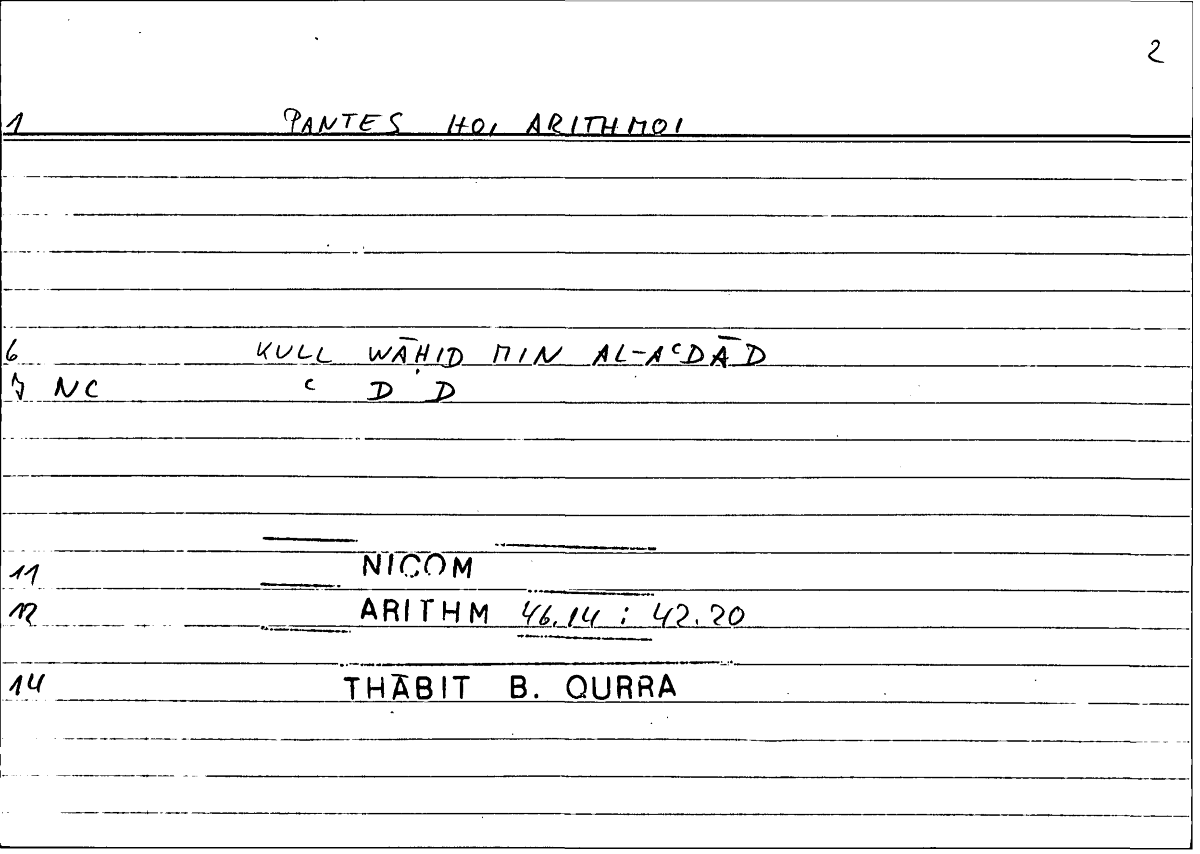 2
1 PANTES HOI ARITHMOI
6 KULL WĀḤID MIN AL-AᶜDĀD
7 NC ᶜ D D
11 NICOM
12 ARITHM 46.14 : 42.20
14 THĀBIT B. QURRA